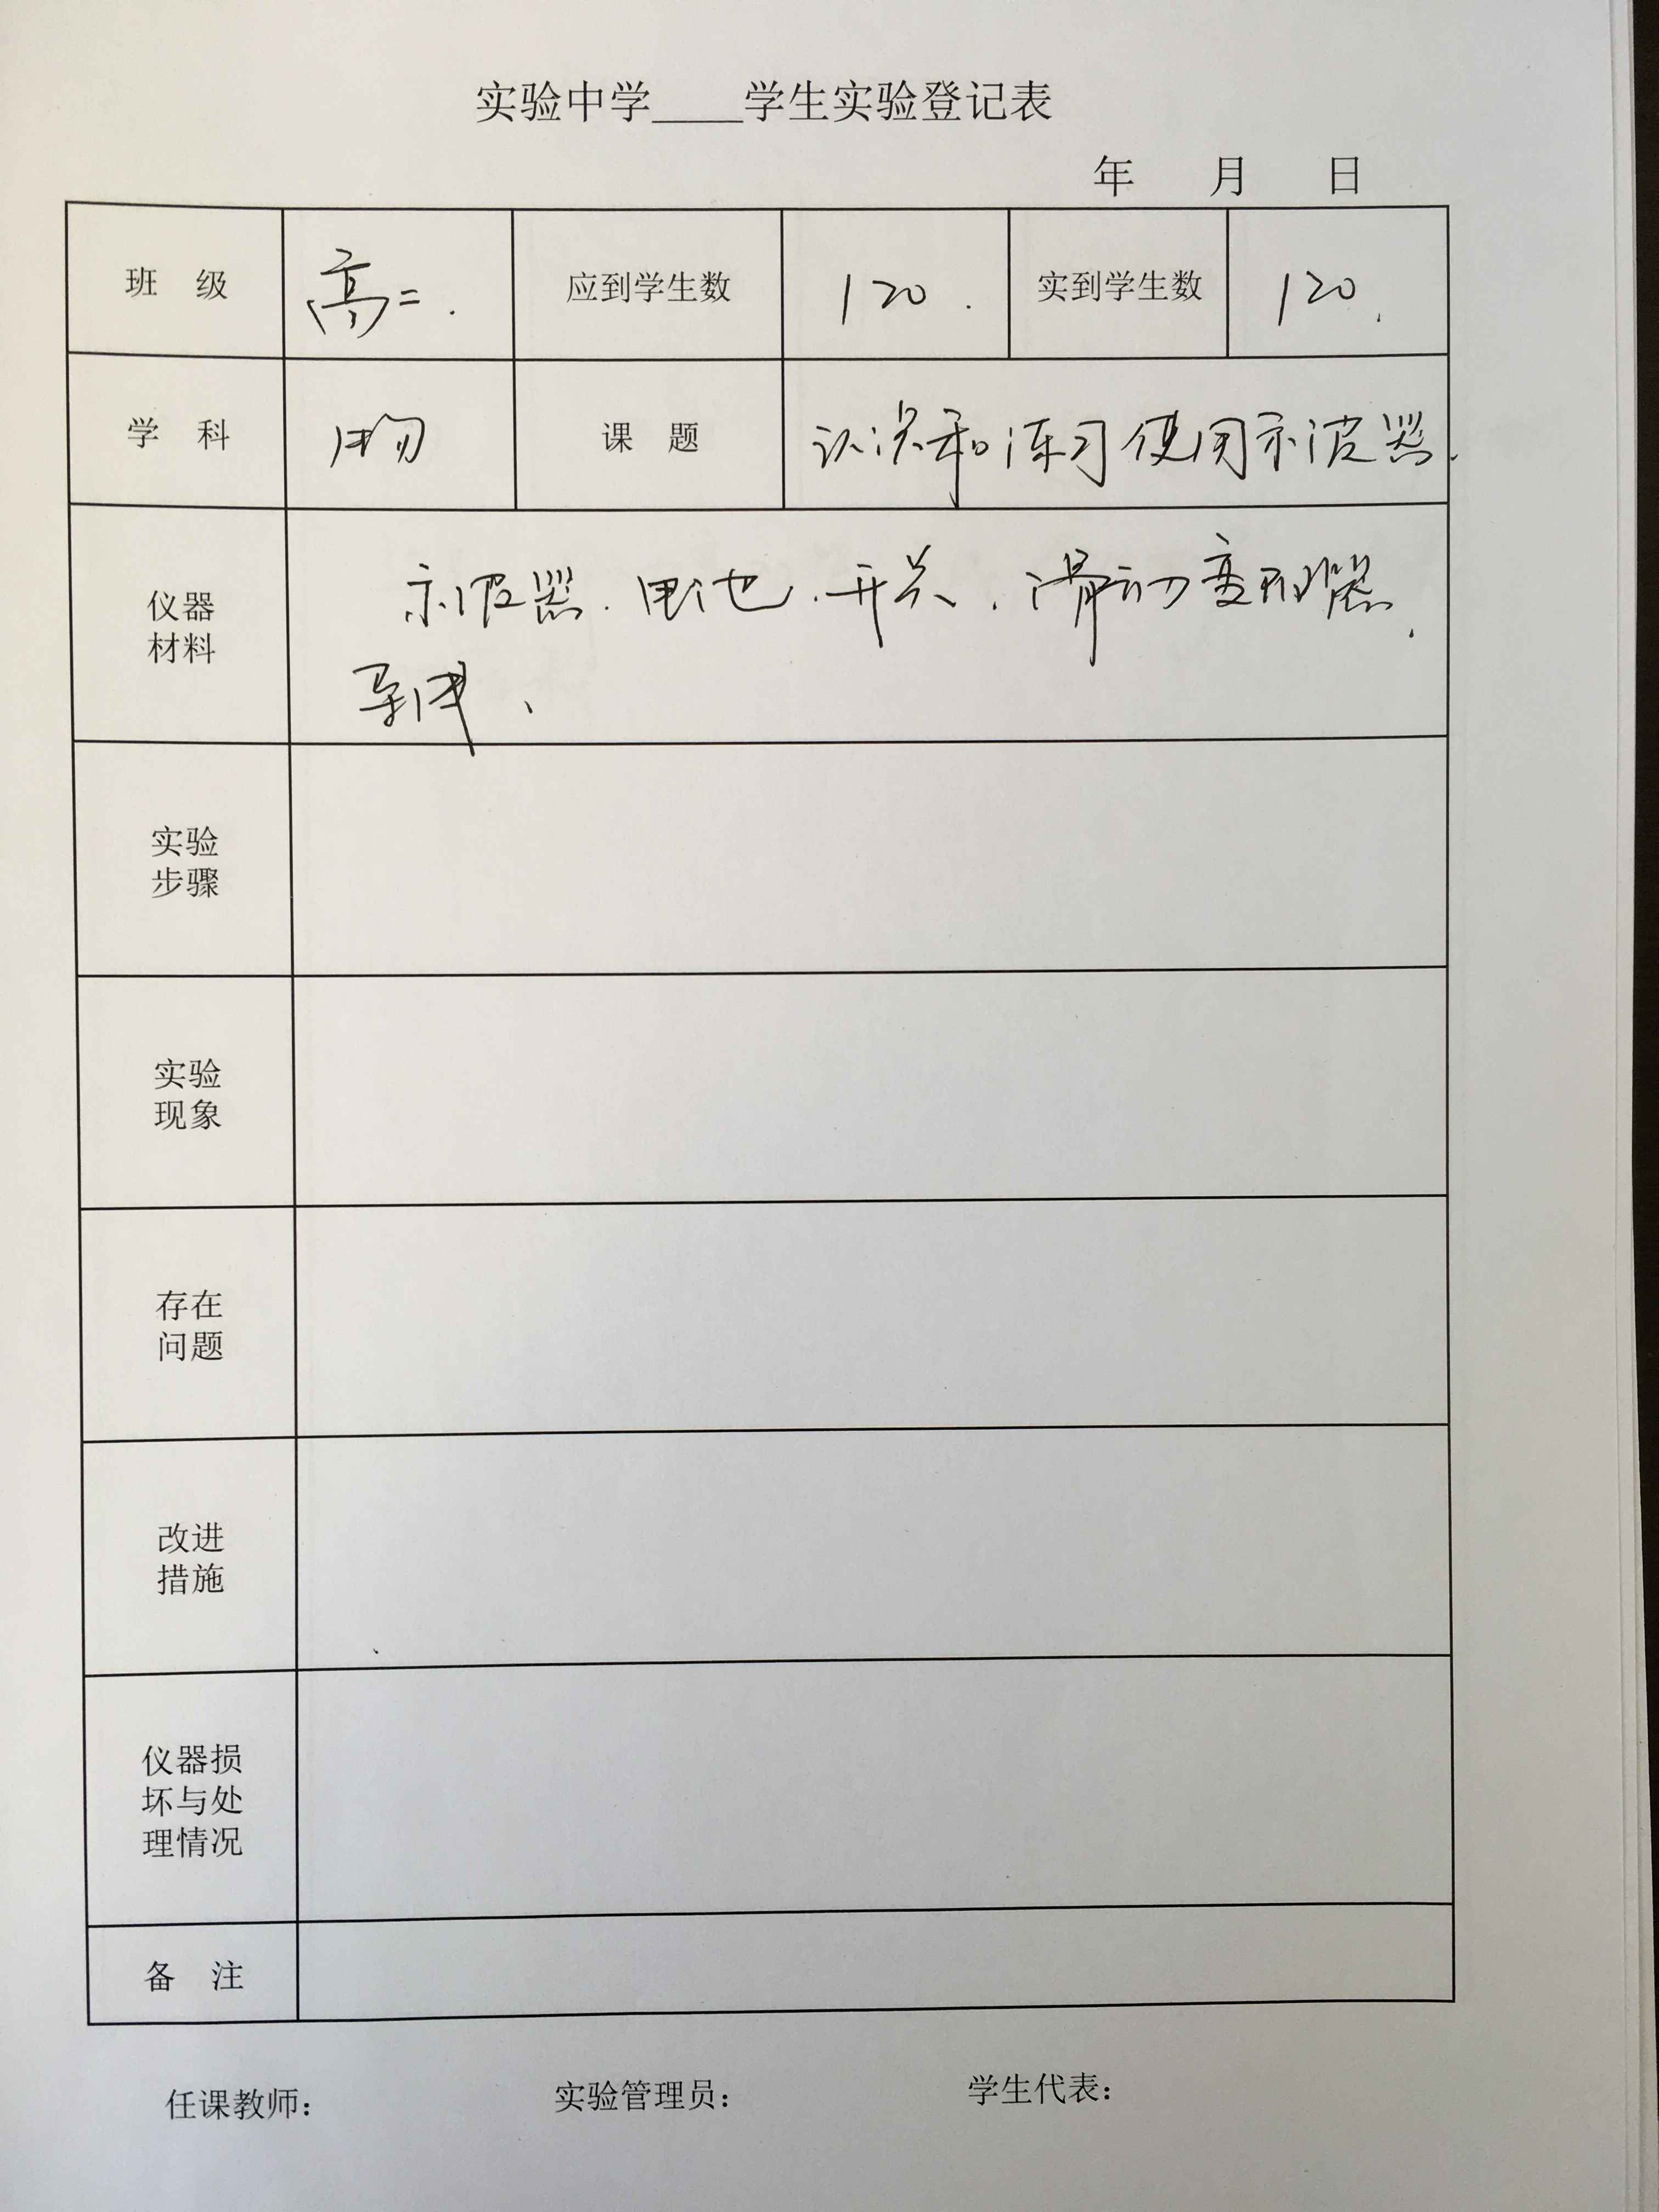 实验中学____学生实验登记表
年 月 日
班 级 高二. 应到学生数 120. 实到学生数 120.
学 科 物 课 题 认识和练习使用示波器.
仪器
材料
示波器.电池.开关.滑动变阻器.
导线、
实验
步骤
实验
现象
存在
问题
改进
措施
仪器损
坏与处
理情况
备 注
任课教师: 实验管理员: 学生代表: